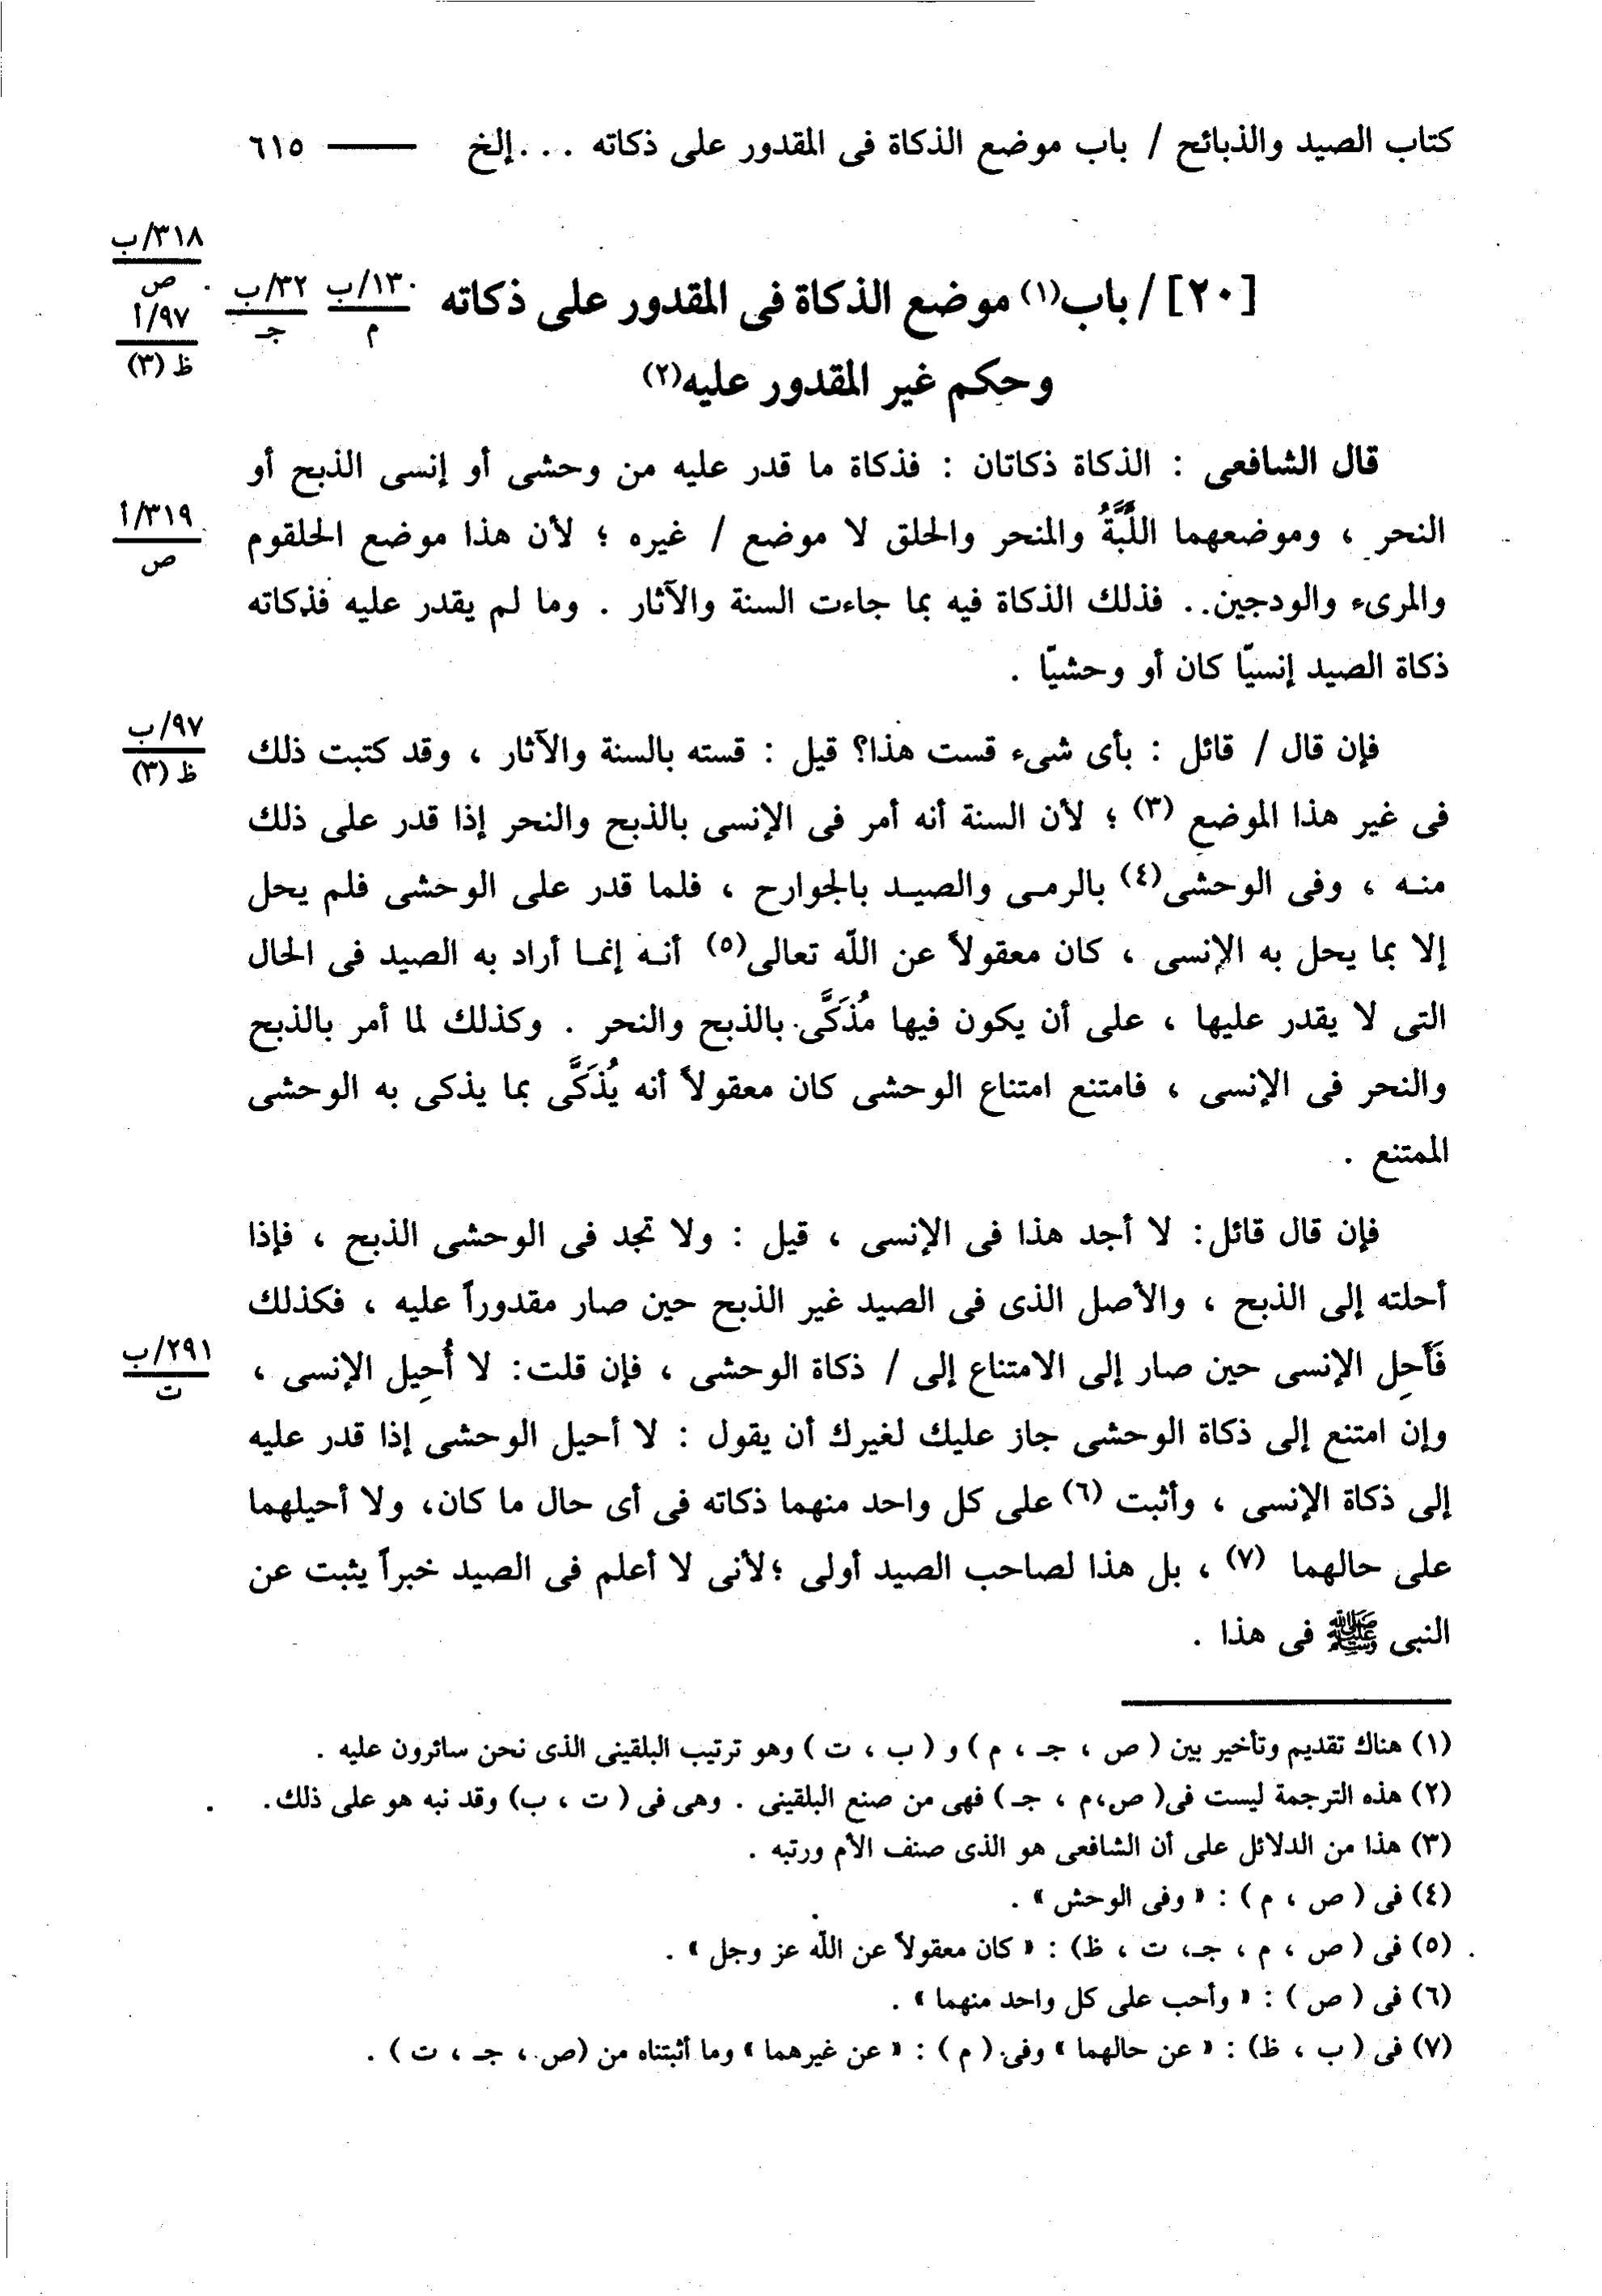 كتاب الصيد والذبائح / باب موضع الذكاة فى المقدور على ذكاته . . .إلخ —— ٦١٥
٣١٨/ب
ص
٩٧/أ
ظ (٣)
[٢٠] / باب(١) موضع الذكاة فى المقدور على ذكاته
١٣٠/ب
م
٣٢/ب
جـ
وحكم غير المقدور عليه(٢)
قال الشافعى : الذكاة ذكاتان : فذكاة ما قدر عليه من وحشى أو إنسى الذبح أو
النحر ، وموضعهما اللَّبَّةُ والمنحر والحلق لا موضع / غيره ؛ لأن هذا موضع الحلقوم
٣١٩/أ
ص
والمرىء والودجين.. فذلك الذكاة فيه بما جاءت السنة والآثار . وما لم يقدر عليه فذكاته
ذكاة الصيد إنسيّا كان أو وحشيّا .
فإن قال / قائل : بأى شىء قست هذا؟ قيل : قسته بالسنة والآثار ، وقد كتبت ذلك
٩٧/ب
ظ (٣)
فى غير هذا الموضع (٣) ؛ لأن السنة أنه أمر فى الإنسى بالذبح والنحر إذا قدر على ذلك
منـه ، وفى الوحشى(٤) بالرمـى والصيـد بالجوارح ، فلما قدر على الوحشى فلم يحل
إلا بما يحل به الإنسى ، كان معقولاً عن الله تعالى(٥) أنـه إنمـا أراد به الصيد فى الحال
التى لا يقدر عليها ، على أن يكون فيها مُذَكًّى بالذبح والنحر . وكذلك لما أمر بالذبح
والنحر فى الإنسى ، فامتنع امتناع الوحشى كان معقولاً أنه يُذَكَّى بما يذكى به الوحشى
الممتنع .
فإن قال قائل: لا أجد هذا فى الإنسى ، قيل : ولا تجد فى الوحشى الذبح ، فإذا
أحلته إلى الذبح ، والأصل الذى فى الصيد غير الذبح حين صار مقدوراً عليه ، فكذلك
فَأَحِل الإنسى حين صار إلى الامتناع إلى / ذكاة الوحشى ، فإن قلت: لا أُحِيل الإنسى ،
٢٩١/ب
ت
وإن امتنع إلى ذكاة الوحشى جاز عليك لغيرك أن يقول : لا أحيل الوحشى إذا قدر عليه
إلى ذكاة الإنسى ، وأثبت (٦) على كل واحد منهما ذكاته فى أى حال ما كان، ولا أحيلهما
على حالهما (٧) ، بل هذا لصاحب الصيد أولى ؛لأنى لا أعلم فى الصيد خبراً يثبت عن
النبى ﷺ فى هذا .
(١) هناك تقديم وتأخير بين ( ص ، جـ ، م ) و ( ب ، ت ) وهو ترتيب البلقينى الذى نحن سائرون عليه .
(٢) هذه الترجمة ليست فى( ص،م ، جـ ) فهى من صنع البلقينى . وهى فى ( ت ، ب) وقد نبه هو على ذلك.
(٣) هذا من الدلائل على أن الشافعى هو الذى صنف الأم ورتبه .
(٤) فى ( ص ، م ) : « وفى الوحش » .
(٥) فى ( ص ، م ، جـ، ت ، ظ) : « كان معقولاً عن الله عز وجل » .
(٦) فى ( ص ) : « وأحب على كل واحد منهما » .
(٧) فى ( ب ، ظ) : « عن حالهما » وفى ( م ) : « عن غيرهما » وما أثبتناه من (ص ، جـ ، ت ) .